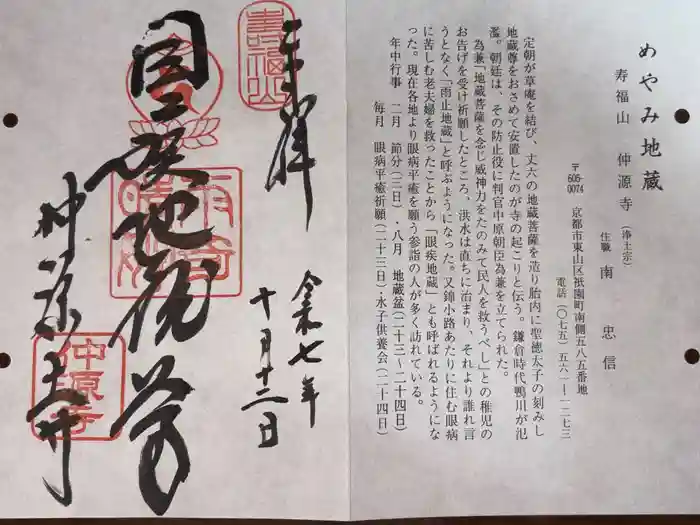 めやみ地蔵
寿福山 仲源寺 (浄土宗)
住職 南 忠信
〒605-0074 京都市東山区祇園町南側五八五番地
電話(〇七五)五六一ー一二七三
定朝が草庵を結び、丈六の地蔵菩薩を造り胎内に聖徳太子の刻みし
地蔵尊をおさめて安置したのが寺の起こりと伝う。鎌倉時代鴨川が氾
濫。朝廷は、その防止役に判官中原朝臣為兼を立てられた。
為兼「地蔵菩薩を念じ威神力をたのみて民人を救うべし」との稚児の
お告げを受け祈願したところ、洪水は直ちに治まり、それより誰れ言
うとなく「雨止地蔵」と呼ぶようになった。又錦小路あたりに住む眼病
に苦しむ老夫婦を救ったことから「眼疾地蔵」とも呼ばれるようにな
った。現在各地より眼病平癒を願う参詣の人が多く訪れている。
年中行事 二月 節分(三日)・八月 地蔵盆(二十三~二十四日)
毎月 眼病平癒祈願(二十三日)・水子供養会(二十四日)
奉拝
寿福山
令和七年
十月十二日
雨奇晴好
仲源寺
仲源寺